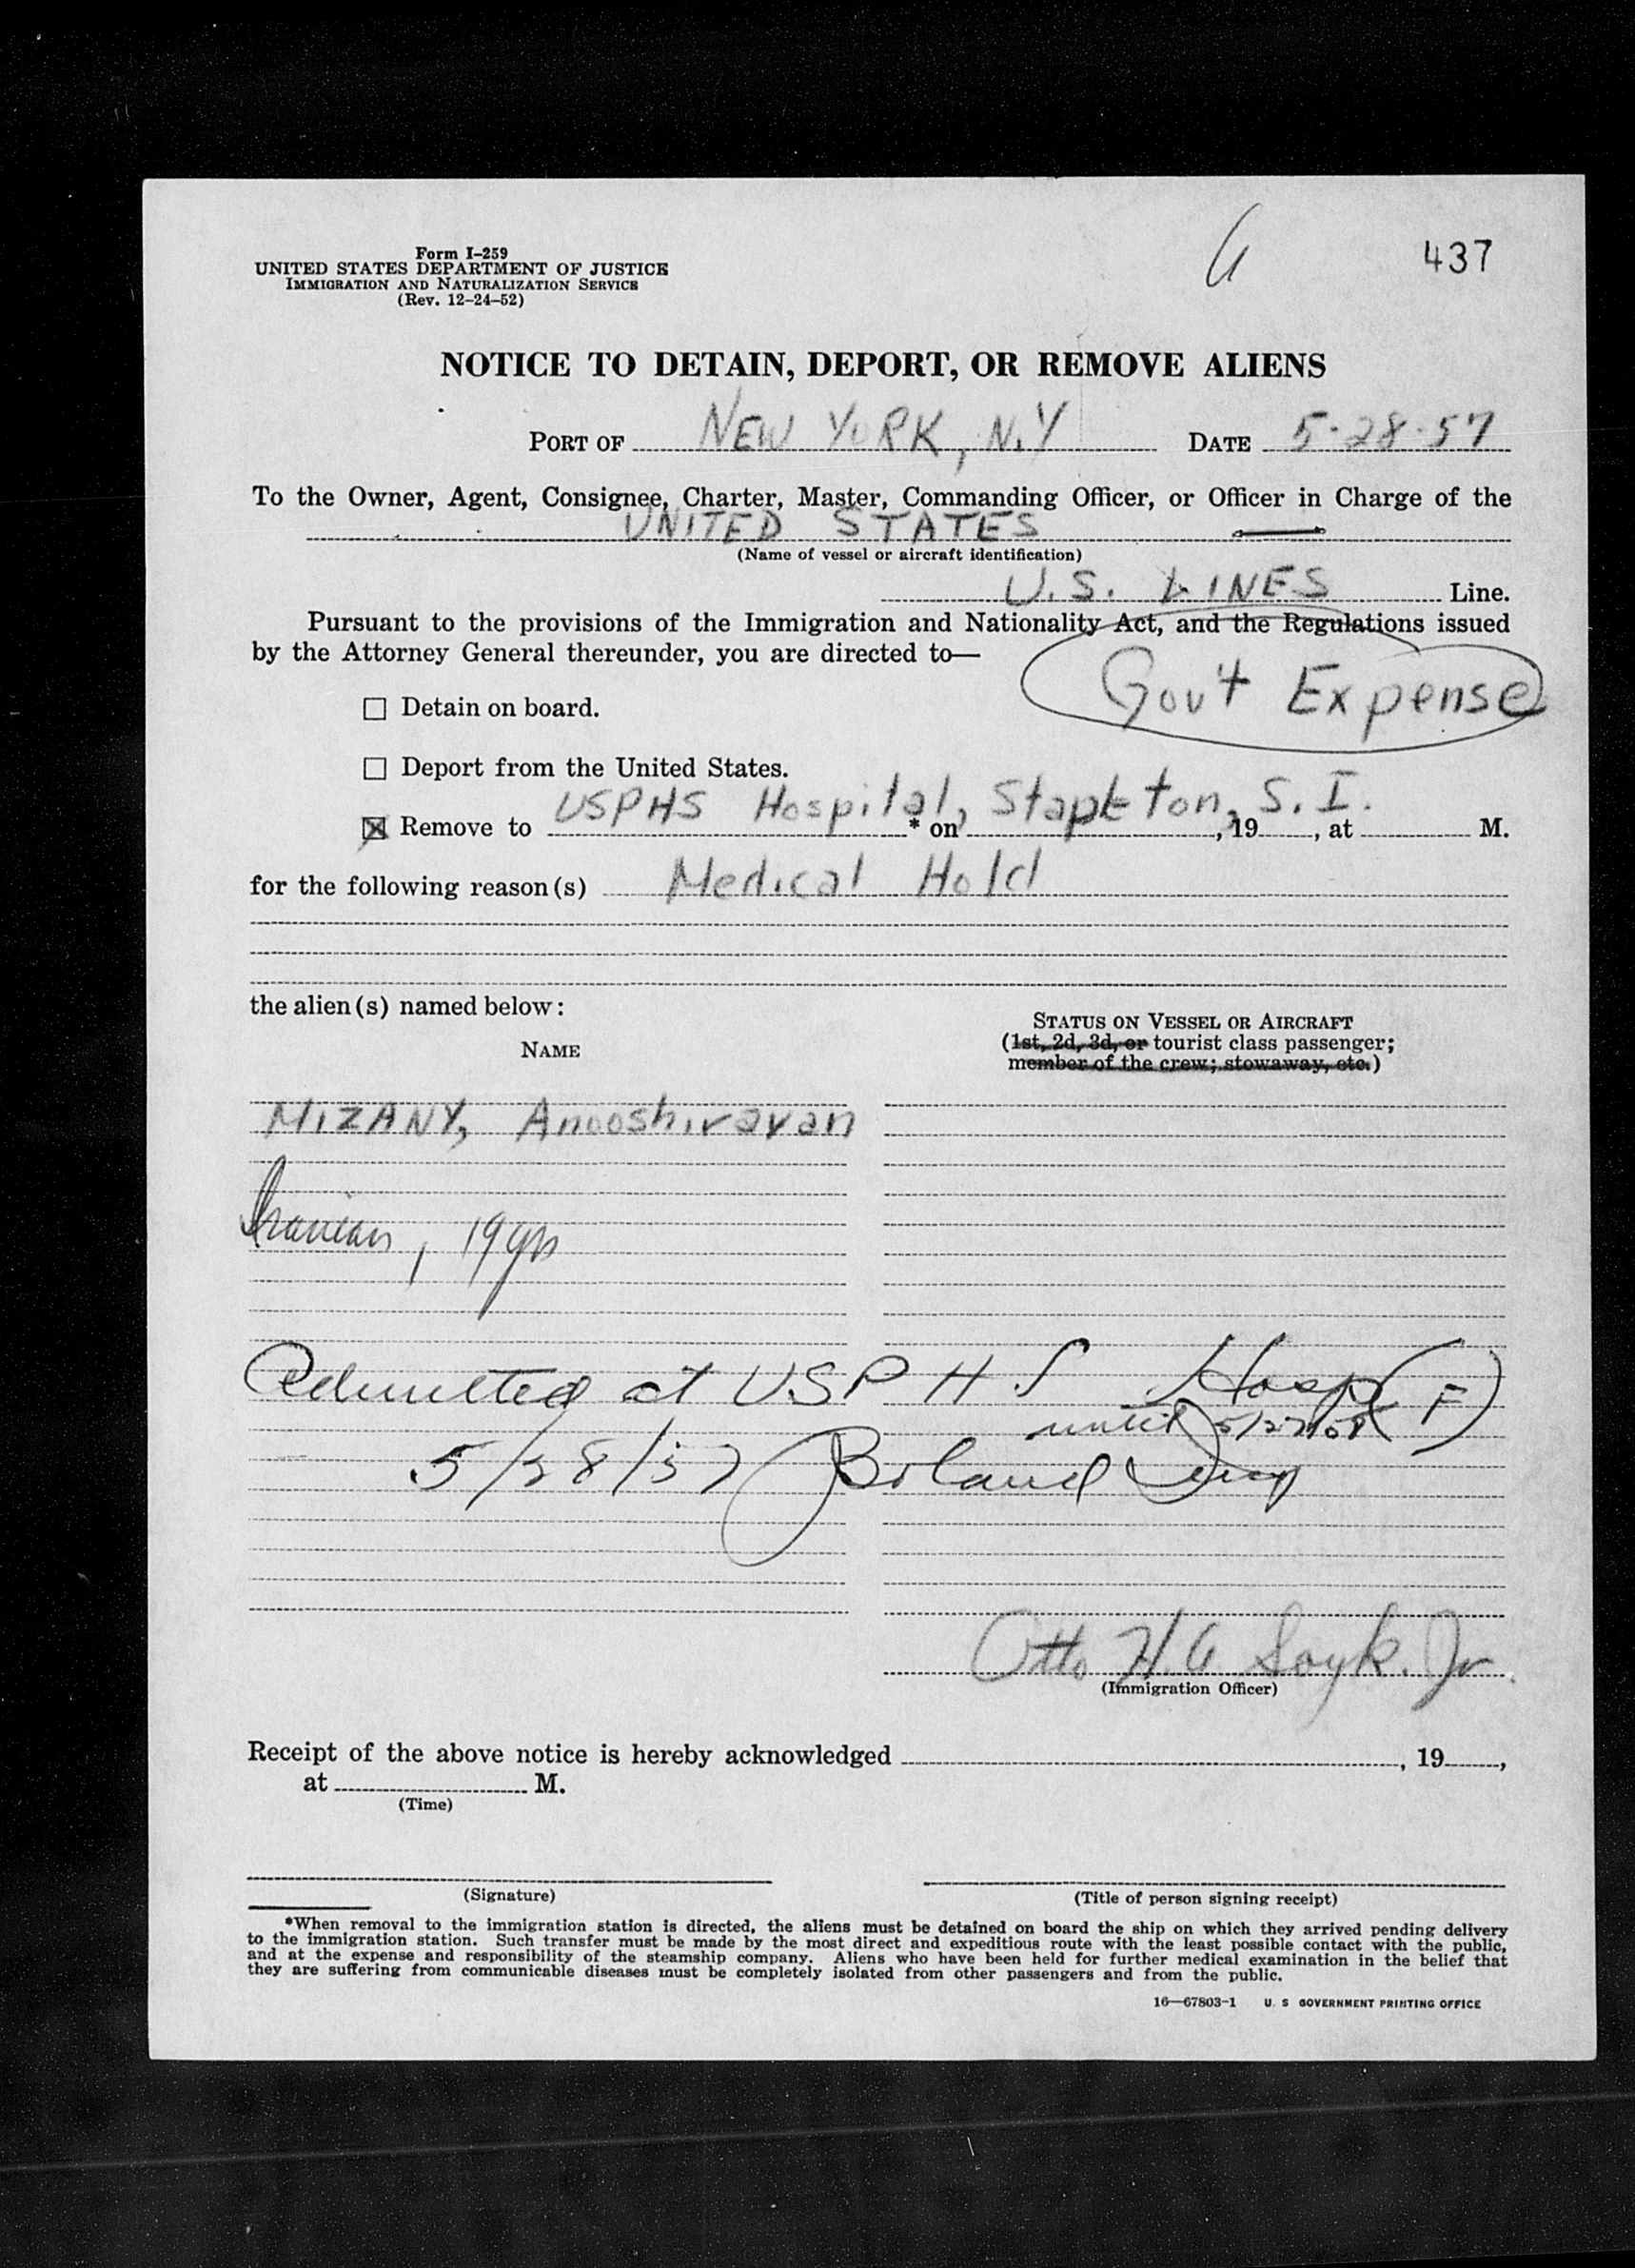 Form I-259
UNITED STATES DEPARTMENT OF JUSTICE
IMMIGRATION AND NATURALIZATION SERVICE
(Rev. 12-24-52)
437
NOTICE TO DETAIN, DEPORT, OR REMOVE ALIENS
PORT OF NEW YORK, N.Y DATE 5-28-57
To the Owner, Agent, Consignee, Charter, Master, Commanding Officer, or Officer in Charge of the
UNITED STATES
(Name of vessel or aircraft identification)
U.S. LINES Line.
Pursuant to the provisions of the Immigration and Nationality Act, and the Regulations issued
by the Attorney General thereunder, you are directed to—
Gov't Expense
☐ Detain on board.
☐ Deport from the United States.
☒ Remove to USPHS Hospital, Stapleton, S.I. * on , 19 , at M.
for the following reason(s) Medical Hold
the alien(s) named below:
STATUS ON VESSEL OR AIRCRAFT
(1st, 2d, 3d, or tourist class passenger;
member of the crew; stowaway, etc.)
NAME
MIZANY, Anooshiravan
Iranian, 19 yrs
Admitted at USPHS Hosp (F)
until 5/27/58
5/28/57 Boland
Otto H. G. Soyk. Jr.
(Immigration Officer)
Receipt of the above notice is hereby acknowledged , 19 ,
at M.
(Time)
(Signature)
(Title of person signing receipt)
*When removal to the immigration station is directed, the aliens must be detained on board the ship on which they arrived pending delivery
to the immigration station. Such transfer must be made by the most direct and expeditious route with the least possible contact with the public,
and at the expense and responsibility of the steamship company. Aliens who have been held for further medical examination in the belief that
they are suffering from communicable diseases must be completely isolated from other passengers and from the public.
16—67803-1 U. S GOVERNMENT PRINTING OFFICE